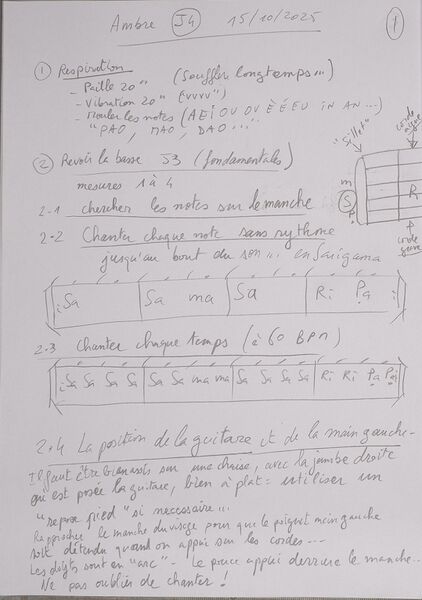 Ambre J4 15/10/2025
1
① Respiration
- Paille 20" (Souffler longtemps...)
- Vibration 20" (vvvv")
- Rouler les notes (A E I O U OU È É EU IN AN ...)
"PAO, MAO, DAO..."
② Revoir la basse J3 (fondamentales)
mesures 1 à 4
"Sillet"
corde aigue
m
S
P.
R
P
corde grave
2-1 chercher les notes sur le manche
2-2 Chanter chaque note sans rythme
jusqu'au bout du son ... en Sarigama
Sa | Sa ma | Sa | Ri Pa
2.3 Chanter chaque temps (à 60 BPM)
Sa Sa Sa Sa | Sa Sa ma ma | Sa Sa Sa Sa | Ri Ri Pa Pa
2.4 La position de la guitare et de la main gauche -
Il faut être bien assis sur une chaise, avec la jambe droite
où est posée la guitare, bien à plat = utiliser un
"repose pied" si necessaire...
Rapprocher le manche du visage pour que le poignet main gauche
soit détendu quand on appui sur les cordes...
Les doigts sont en "arc" - Le pouce appui derriere le manche...
Ne pas oublier de chanter !